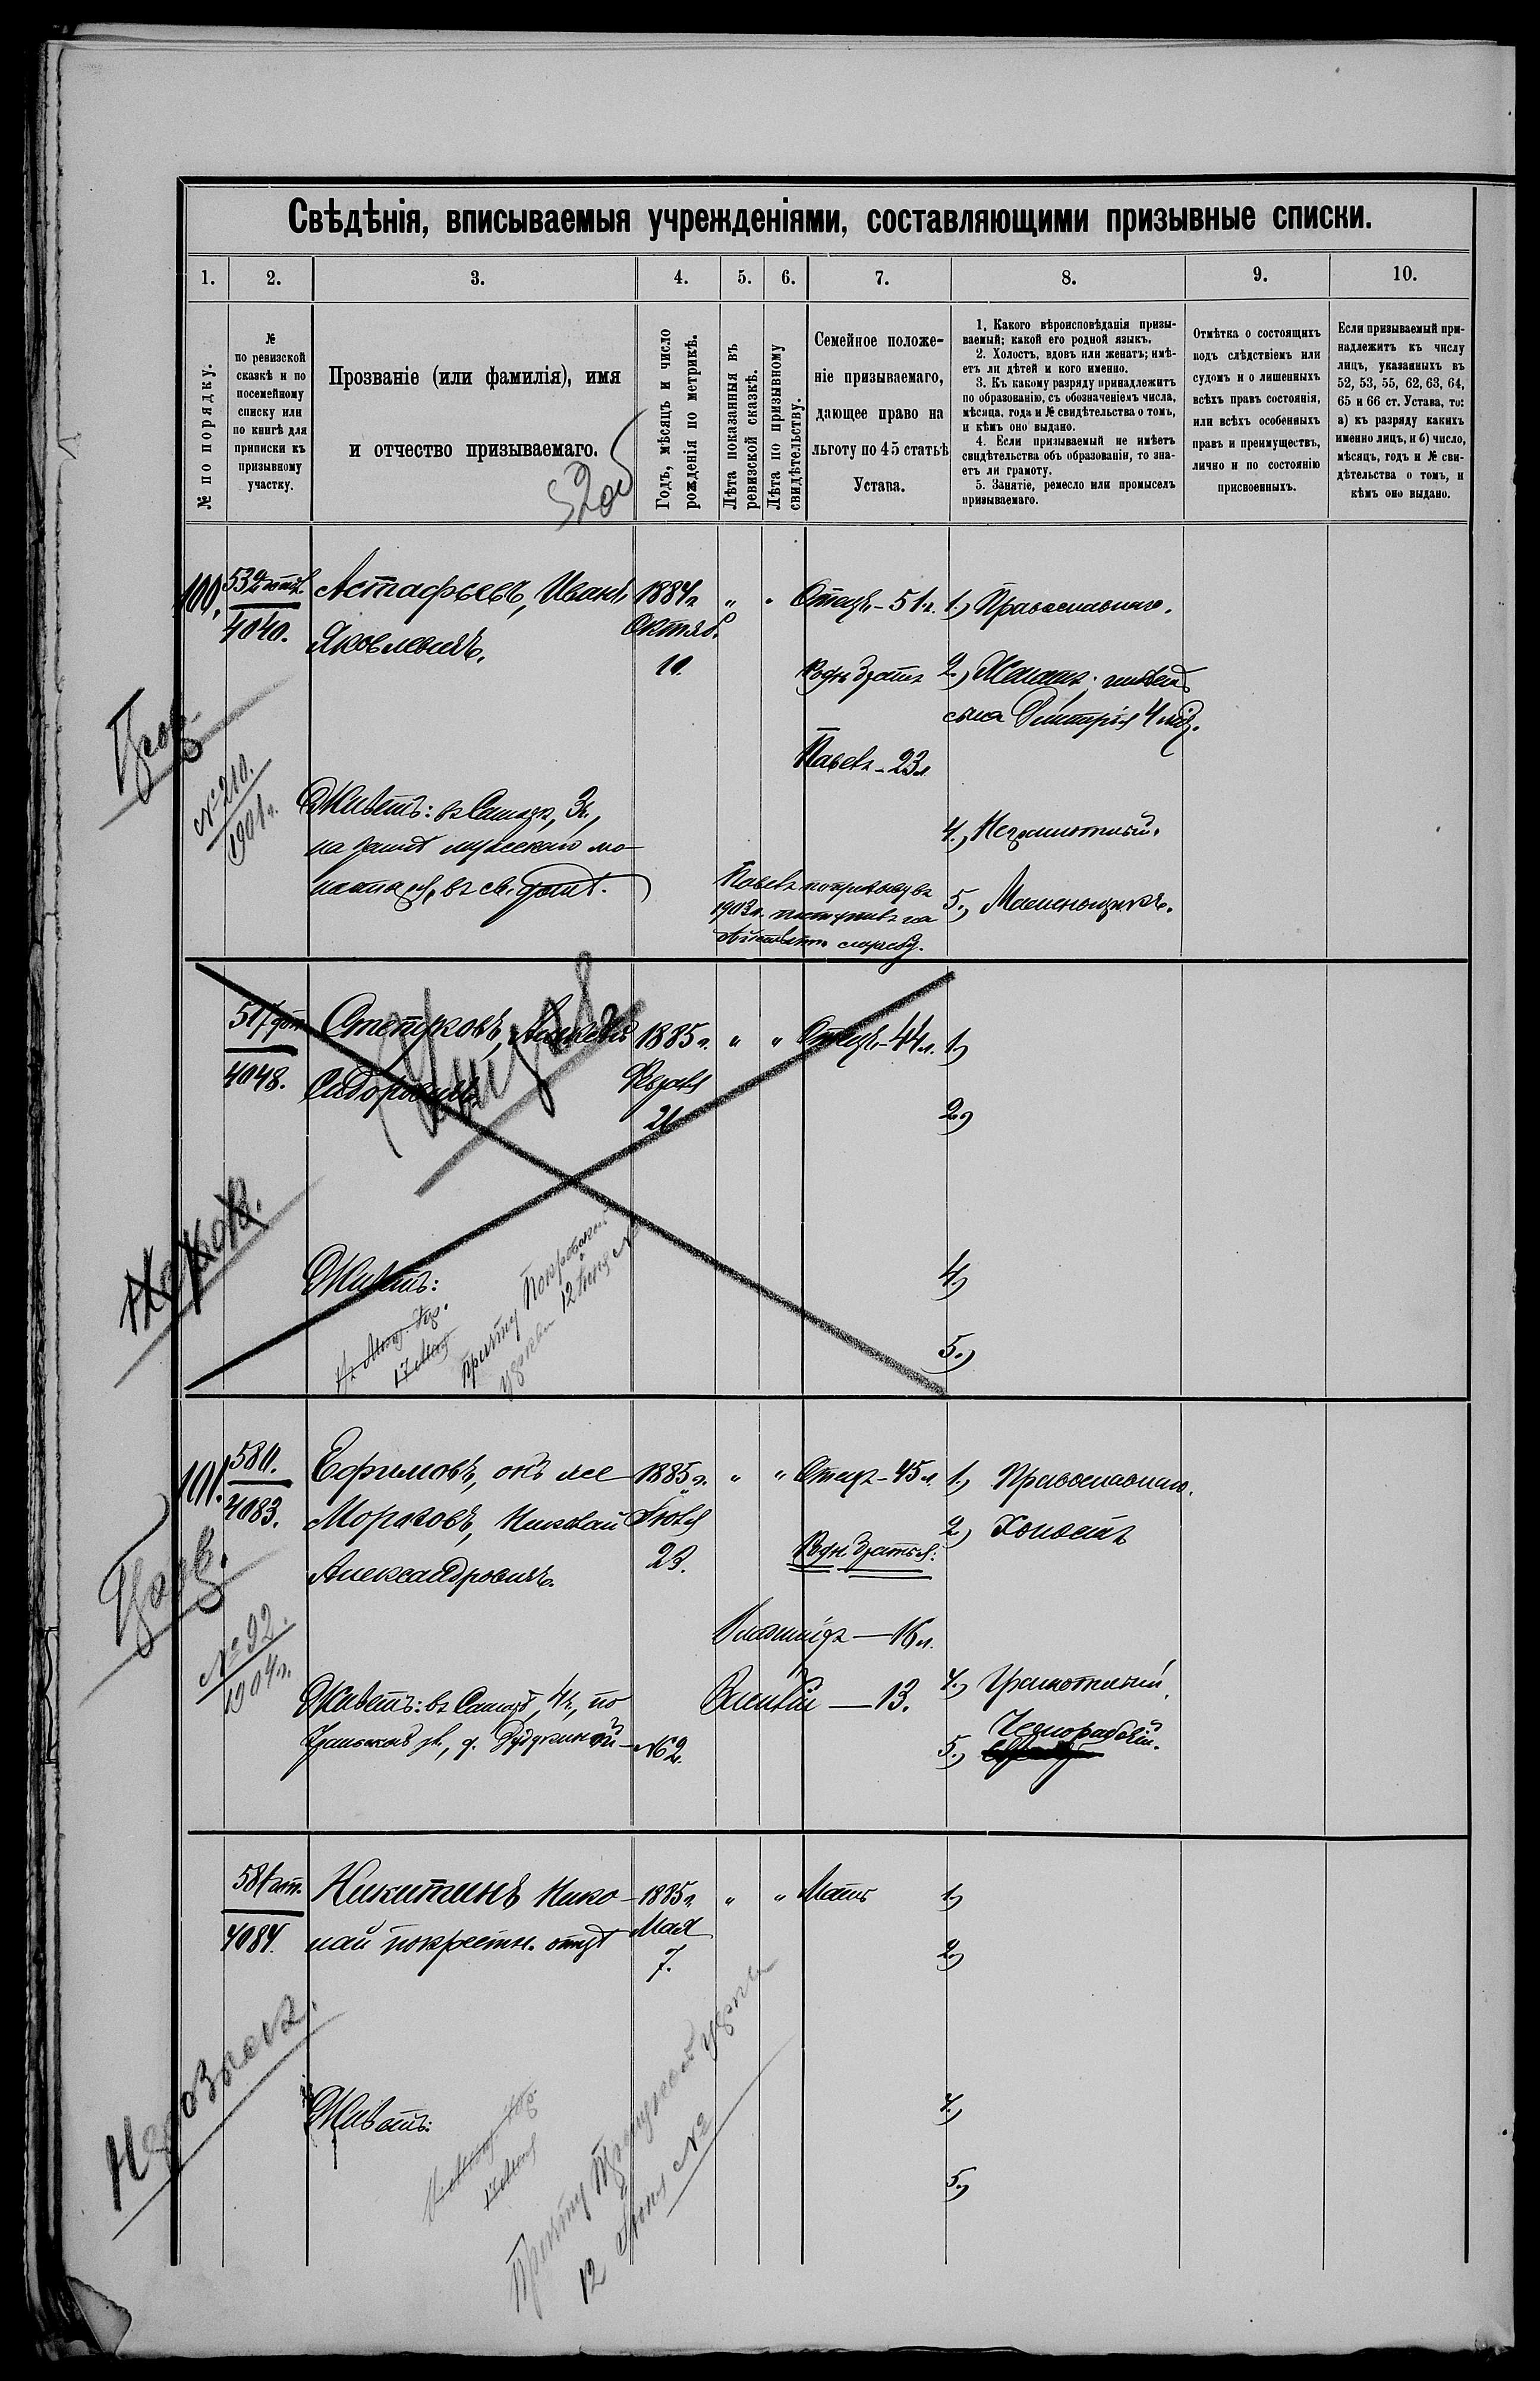 Свѣдѣнія, вписываемыя учрежденіями, составляющими призывные списки.
1. 2. 3. 4. 5. 6. 7. 8. 9. 10.
№ по порядку.
№
по ревизской
сказкѣ и по
посемейному
списку или
по книгѣ для
приписки къ
призывному
участку.
Прозваніе (или фамилія), имя
и отчество призываемаго.
Годъ, мѣсяцъ и число
рожденія по метрикѣ.
Лѣта показанныя въ
ревизской сказкѣ.
Лѣта по призывному
свидѣтельству.
Семейное положе-
ніе призываемаго,
дающее право на
льготу по 45 статьѣ
Устава.
1. Какого вѣроисповѣданія призы-
ваемый; какой его родной языкъ.
2. Холостъ, вдовъ или женатъ; имѣ-
етъ ли дѣтей и кого именно.
3. Къ какому разряду принадлежитъ
по образованію, съ обозначеніемъ числа,
мѣсяца, года и № свидѣтельства о томъ,
и кѣмъ оно выдано.
4. Если призываемый не имѣетъ
свидѣтельства объ образованіи, то зна-
етъ ли грамоту.
5. Занятіе, ремесло или промыселъ
призываемаго.
Отмѣтка о состоящихъ
подъ слѣдствіемъ или
судомъ и о лишенныхъ
всѣхъ правъ состоянія,
или всѣхъ особенныхъ
правъ и преимуществъ,
лично и по состоянію
присвоенныхъ.
Если призываемый при-
надлежитъ къ числу
лицъ, указанныхъ въ
52, 53, 55, 62, 63, 64,
65 и 66 ст. Устава, то:
а) къ разряду какихъ
именно лицъ, и б) число,
мѣсяцъ, годъ и № сви-
дѣтельства о томъ, и
кѣмъ оно выдано.
100.
4040.
Астафьевъ, Иванъ
Яковлевичъ.
1884г.
Октяб.
10.
" "
Отецъ - 51 г.
Родн. братъ
Павелъ - 23 л
1.) Православнаго.
2.) Женатъ; имѣетъ
сына Дмитрія 4 мѣс.
4.) Неграмотный.
5.)
№ 210.
1901 г.
Живетъ: въ Самарѣ, 3ч.,
Павелъ по призыву въ
1903г. поступилъ на
дѣйствит. службу.
4048.
Сидоровичъ
1885 г.
21
" "
Отецъ - 44 л.
1.)
2.)
4.)
5.)
Живетъ:
17 Мая
Причту Покровской
церкви 12 Іюня №
101.
580.
4083.
Ефимовъ, онъ же
Моряковъ, Николай
Александровичъ.
1885 г.
Іюля
23.
" "
Отецъ - 45 л.
Родн. братья:
— 16 л.
— 13.
1.) Православнаго.
2.) Холостъ
4.) Грамотный.
5.) Чернорабочій.
№ 92.
1904 г.
Живетъ: въ Самарѣ, 4ч., по
№ 2.
4084.
Никитинъ Нико-
лай по крестн. отцу
1885 г.
Мая
7.
" "
Мать
1.)
2.)
4.)
5.)
Нерозыск.
Живетъ:
17 Мая
Причту Троицкой церкви
12 Іюня №